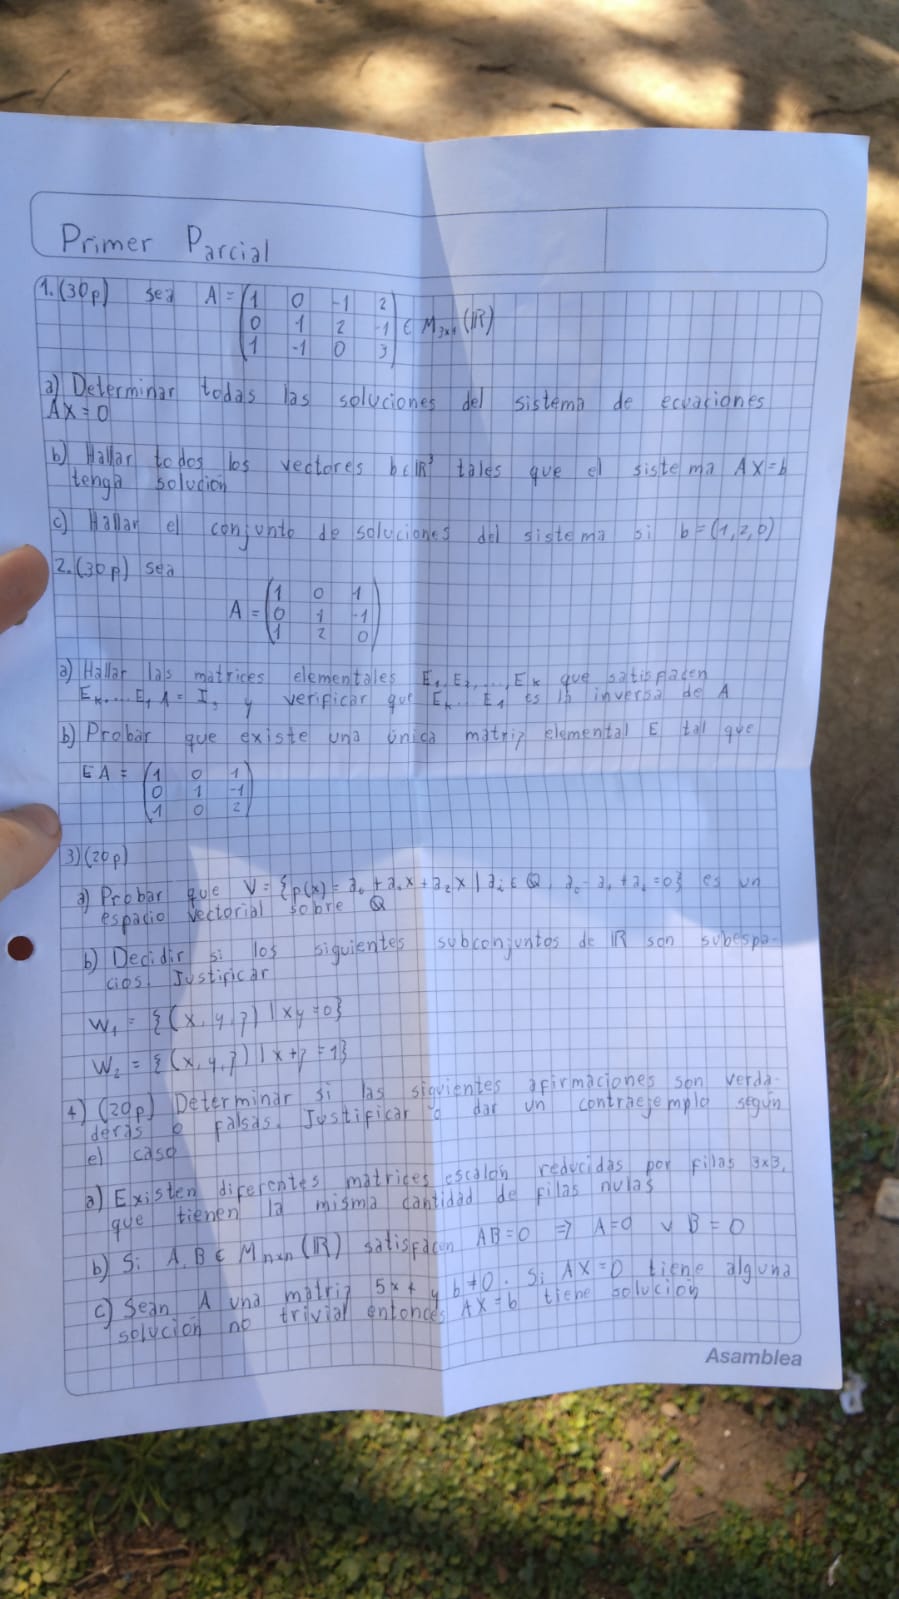 Primer Parcial
1.(30p) sea A = (1 0 -1 2
0 1 2 -1
1 -1 0 3) ∈ M3x4 (IR)
a) Determinar todas las soluciones del sistema de ecuaciones
AX = 0
b) Hallar todos los vectores b∈IR³ tales que el sistema AX=b
tenga solución
c) Hallar el conjunto de soluciones del sistema si b=(1,2,0)
2.(30p) sea
A = (1 0 1
0 1 -1
1 2 0)
a) Hallar las matrices elementales E1, E2, ..., Ek que satisfacen
Ek....E1 A = I3 y verificar que Ek...E1 es la inversa de A
b) Probar que existe una única matriz elemental E tal que
EA = (1 0 1
0 1 -1
1 0 2)
3)(20p)
a) Probar que V = {p(x) = a0 + a1x + a2x | ai ∈ Q, a0 - a1 + a2 = 0} es un
espacio vectorial sobre Q
b) Decidir si los siguientes subconjuntos de IR son subespa-
cios. Justificar
W1 = {(x,y,z) | xy = 0}
W2 = {(x,y,z) | x+z = 1}
4) (20p) Determinar si las siguientes afirmaciones son verda-
deras o falsas. Justificar o dar un contraejemplo según
el caso
a) Existen diferentes matrices escalón reducidas por filas 3x3,
que tienen la misma cantidad de filas nulas
b) Si A, B ∈ Mnxn (IR) satisfacen AB=0 ⇒ A=0 v B=0
c) Sean A una matriz 5x4 y b≠0. Si AX=0 tiene alguna
solución no trivial entonces AX=b tiene solución
Asamblea